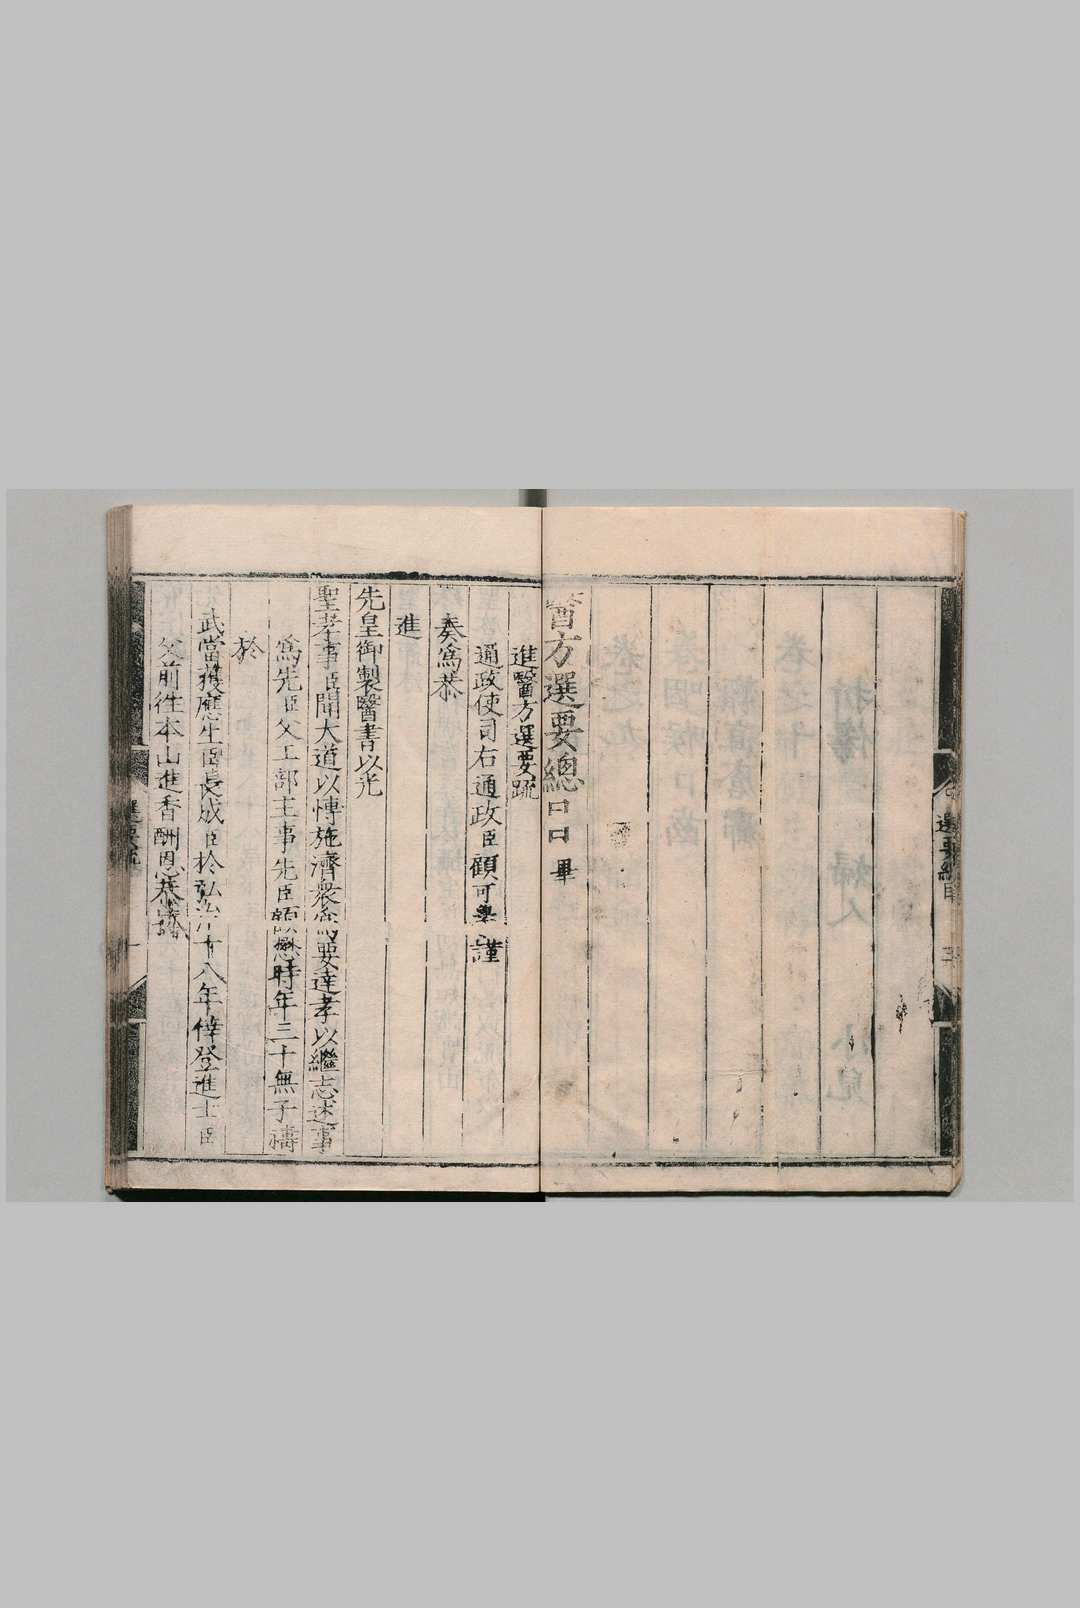 醫方選要總目畢
選要總目 三
進醫方選要疏
通政使司右通政臣顧可學謹
奏爲恭
進
先皇御製醫書以光
聖孝事臣聞大道以愽施濟衆爲要達孝以繼志述事
爲先臣父工部主事先臣顧懋時年三十無子禱
於
武當獲應生臣長成臣於弘治十八年倖登進士臣
父前徃本山進香酬恩恭
選要疏 一